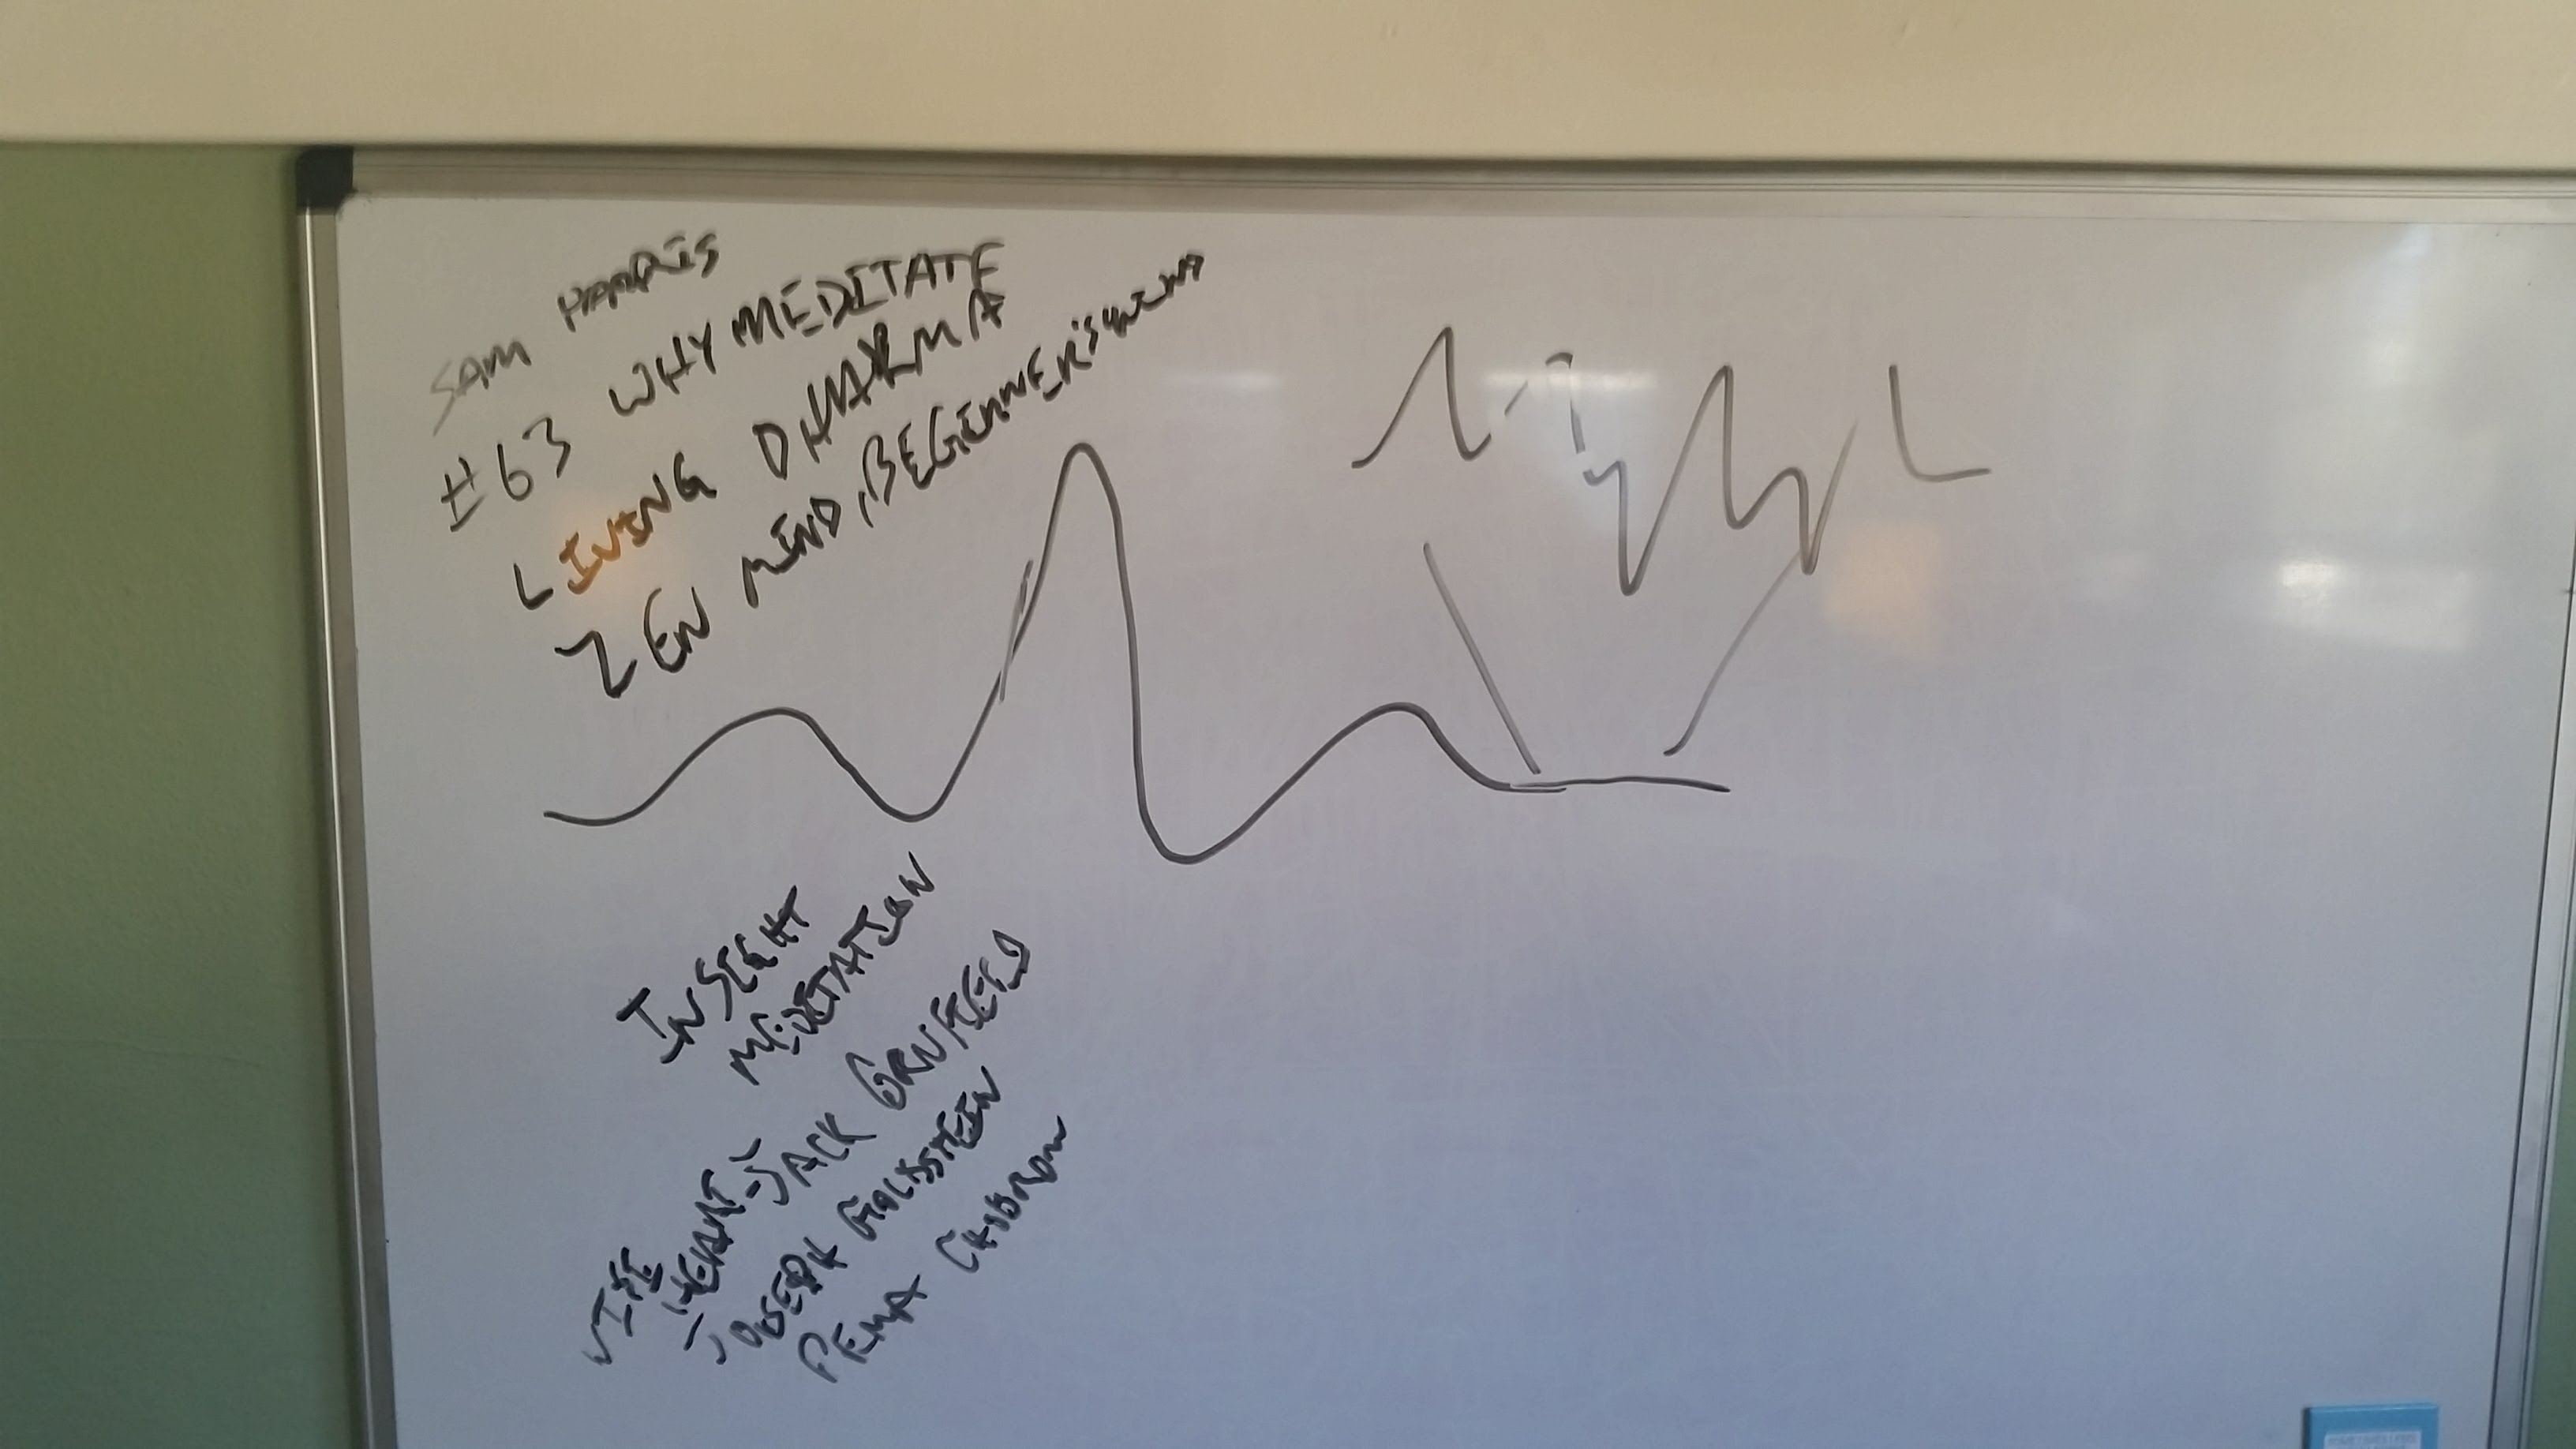 SAM HARRIS
#63 WHY MEDITATE
LIVING DHARMA
ZEN MIND, BEGINNER'S MIND
INSIGHT
MEDITATION
WISE
HEART - JACK KORNFIELD
- JOSEPH GOLDSTEIN
PEMA CHODRON